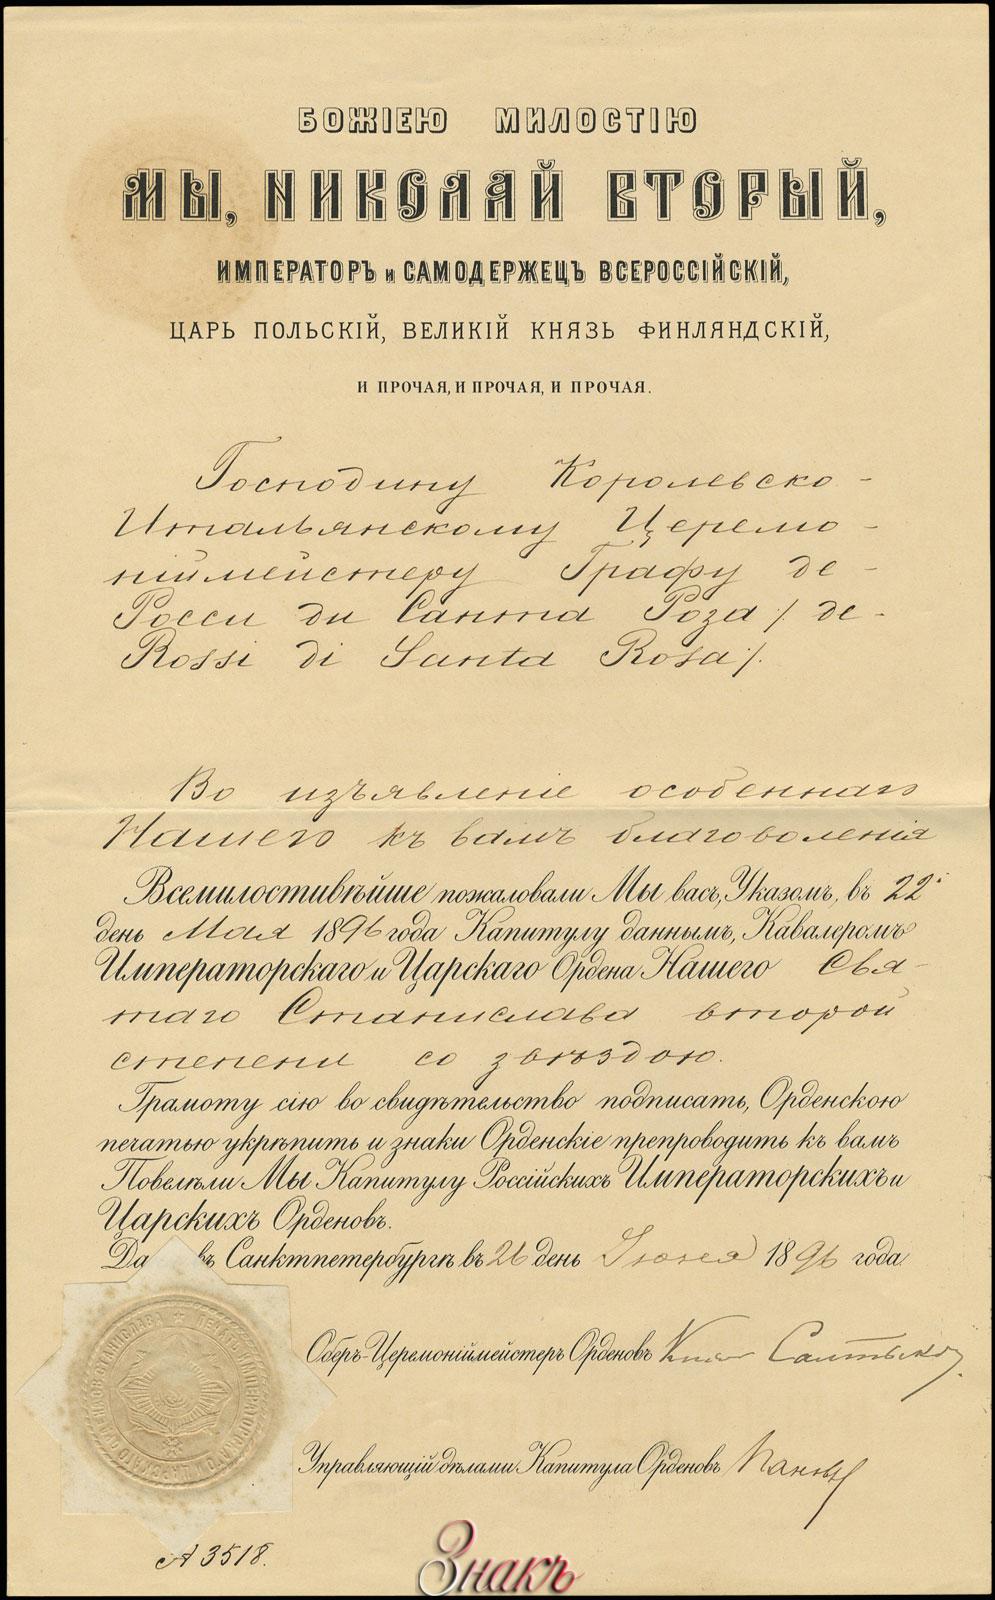 БОЖІЕЮ МИЛОСТІЮ
МЫ, НИКОЛАЙ ВТОРЫЙ,
ИМПЕРАТОРЪ и САМОДЕРЖЕЦЪ ВСЕРОССІЙСКІЙ,
ЦАРЬ ПОЛЬСКІЙ, ВЕЛИКІЙ КНЯЗЬ ФИНЛЯНДСКІЙ,
И ПРОЧАЯ, И ПРОЧАЯ, И ПРОЧАЯ.
Господину Королевско-
Итальянскому Церемо-
ніймейстеру Графу де-
Росси ди Санта Роза /. de-
Rossi di Santa Rosa /.
Во изъявленіе особеннаго
Нашего къ вамъ благоволенія
Всемилостивѣйше пожаловали Мы васъ, Указомъ, въ 22й
день Мая 1896 года Капитулу даннымъ, Кавалеромъ
Императорскаго и Царскаго Ордена Нашего Свя-
таго Станислава второй
степени со звѣздою.
Грамоту сію во свидѣтельство подписать, Орденскою
печатью укрѣпить и знаки Орденскіе препроводить къ вамъ
Повелѣли Мы Капитулу Россійскихъ Императорскихъ и
Царскихъ Орденовъ.
Да въ Санктпетербургѣ въ 26 день Іюня 1896 года
Оберъ-Церемоніймейстеръ Орденовъ Князь Салтыковъ
Управляющій дѣлами Капитула Орденовъ
ПЕЧАТЬ ИМПЕРАТОРСКАГО И ЦАРСКАГО ОРДЕНА СТАНИСЛАВА
№ 3518.
Знакъ